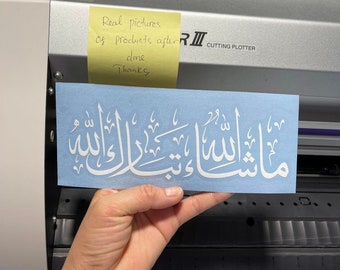 Real pictures
of products after
done
Thanks
R III
CUTTING PLOTTER
ما شاء الله تبارك الله